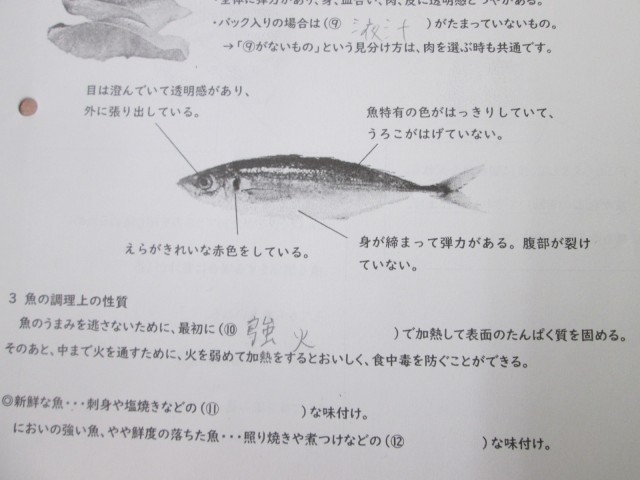 ・全体に弾力があり、身、血合い、肉、皮に透明感とつやがある。
・パック入りの場合は(⑨ 液汁 )がたまっていないもの。
→「⑨がないもの」という見分け方は、肉を選ぶ時も共通です。
目は澄んでいて透明感があり、
外に張り出している。
魚特有の色がはっきりしていて、
うろこがはげていない。
えらがきれいな赤色をしている。
身が締まって弾力がある。腹部が裂け
ていない。
3 魚の調理上の性質
魚のうまみを逃さないために、最初に(⑩ 強火 )で加熱して表面のたんぱく質を固める。
そのあと、中まで火を通すために、火を弱めて加熱をするとおいしく、食中毒を防ぐことができる。
◎新鮮な魚・・・刺身や塩焼きなどの(⑪ )な味付け。
においの強い魚、やや鮮度の落ちた魚・・・照り焼きや煮つけなどの(⑫ )な味付け。